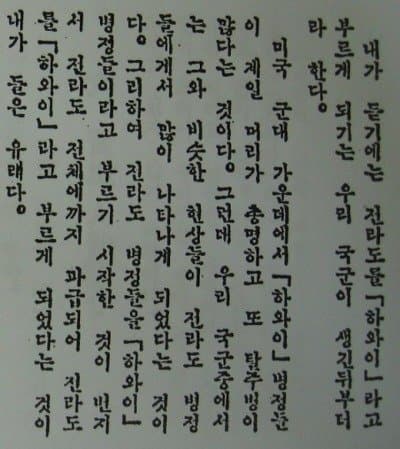 내가 듣기에는 전라도를「하와이」라고
부르게 되기는 우리 국군이 생긴뒤부터
라 한다。
미국 군대 가운데에서「하와이」병정들
이 제일 머리가 총명하고 또 탈주병이
많다는 것이다。그런대 우리 국군중에서
는 그와 비슷한 현상들이 전라도 병정
들에게서 많이 나타나게 되었다는 것이
다。그리하여 전라도 병정들을「하와이」
병정들이라고 부르기 시작한 것이 번지
서 전라도 전체에까지 파급되어 전라도
를「하와이」라고 부르게 되었다는 것이
내가 들은 유래다。